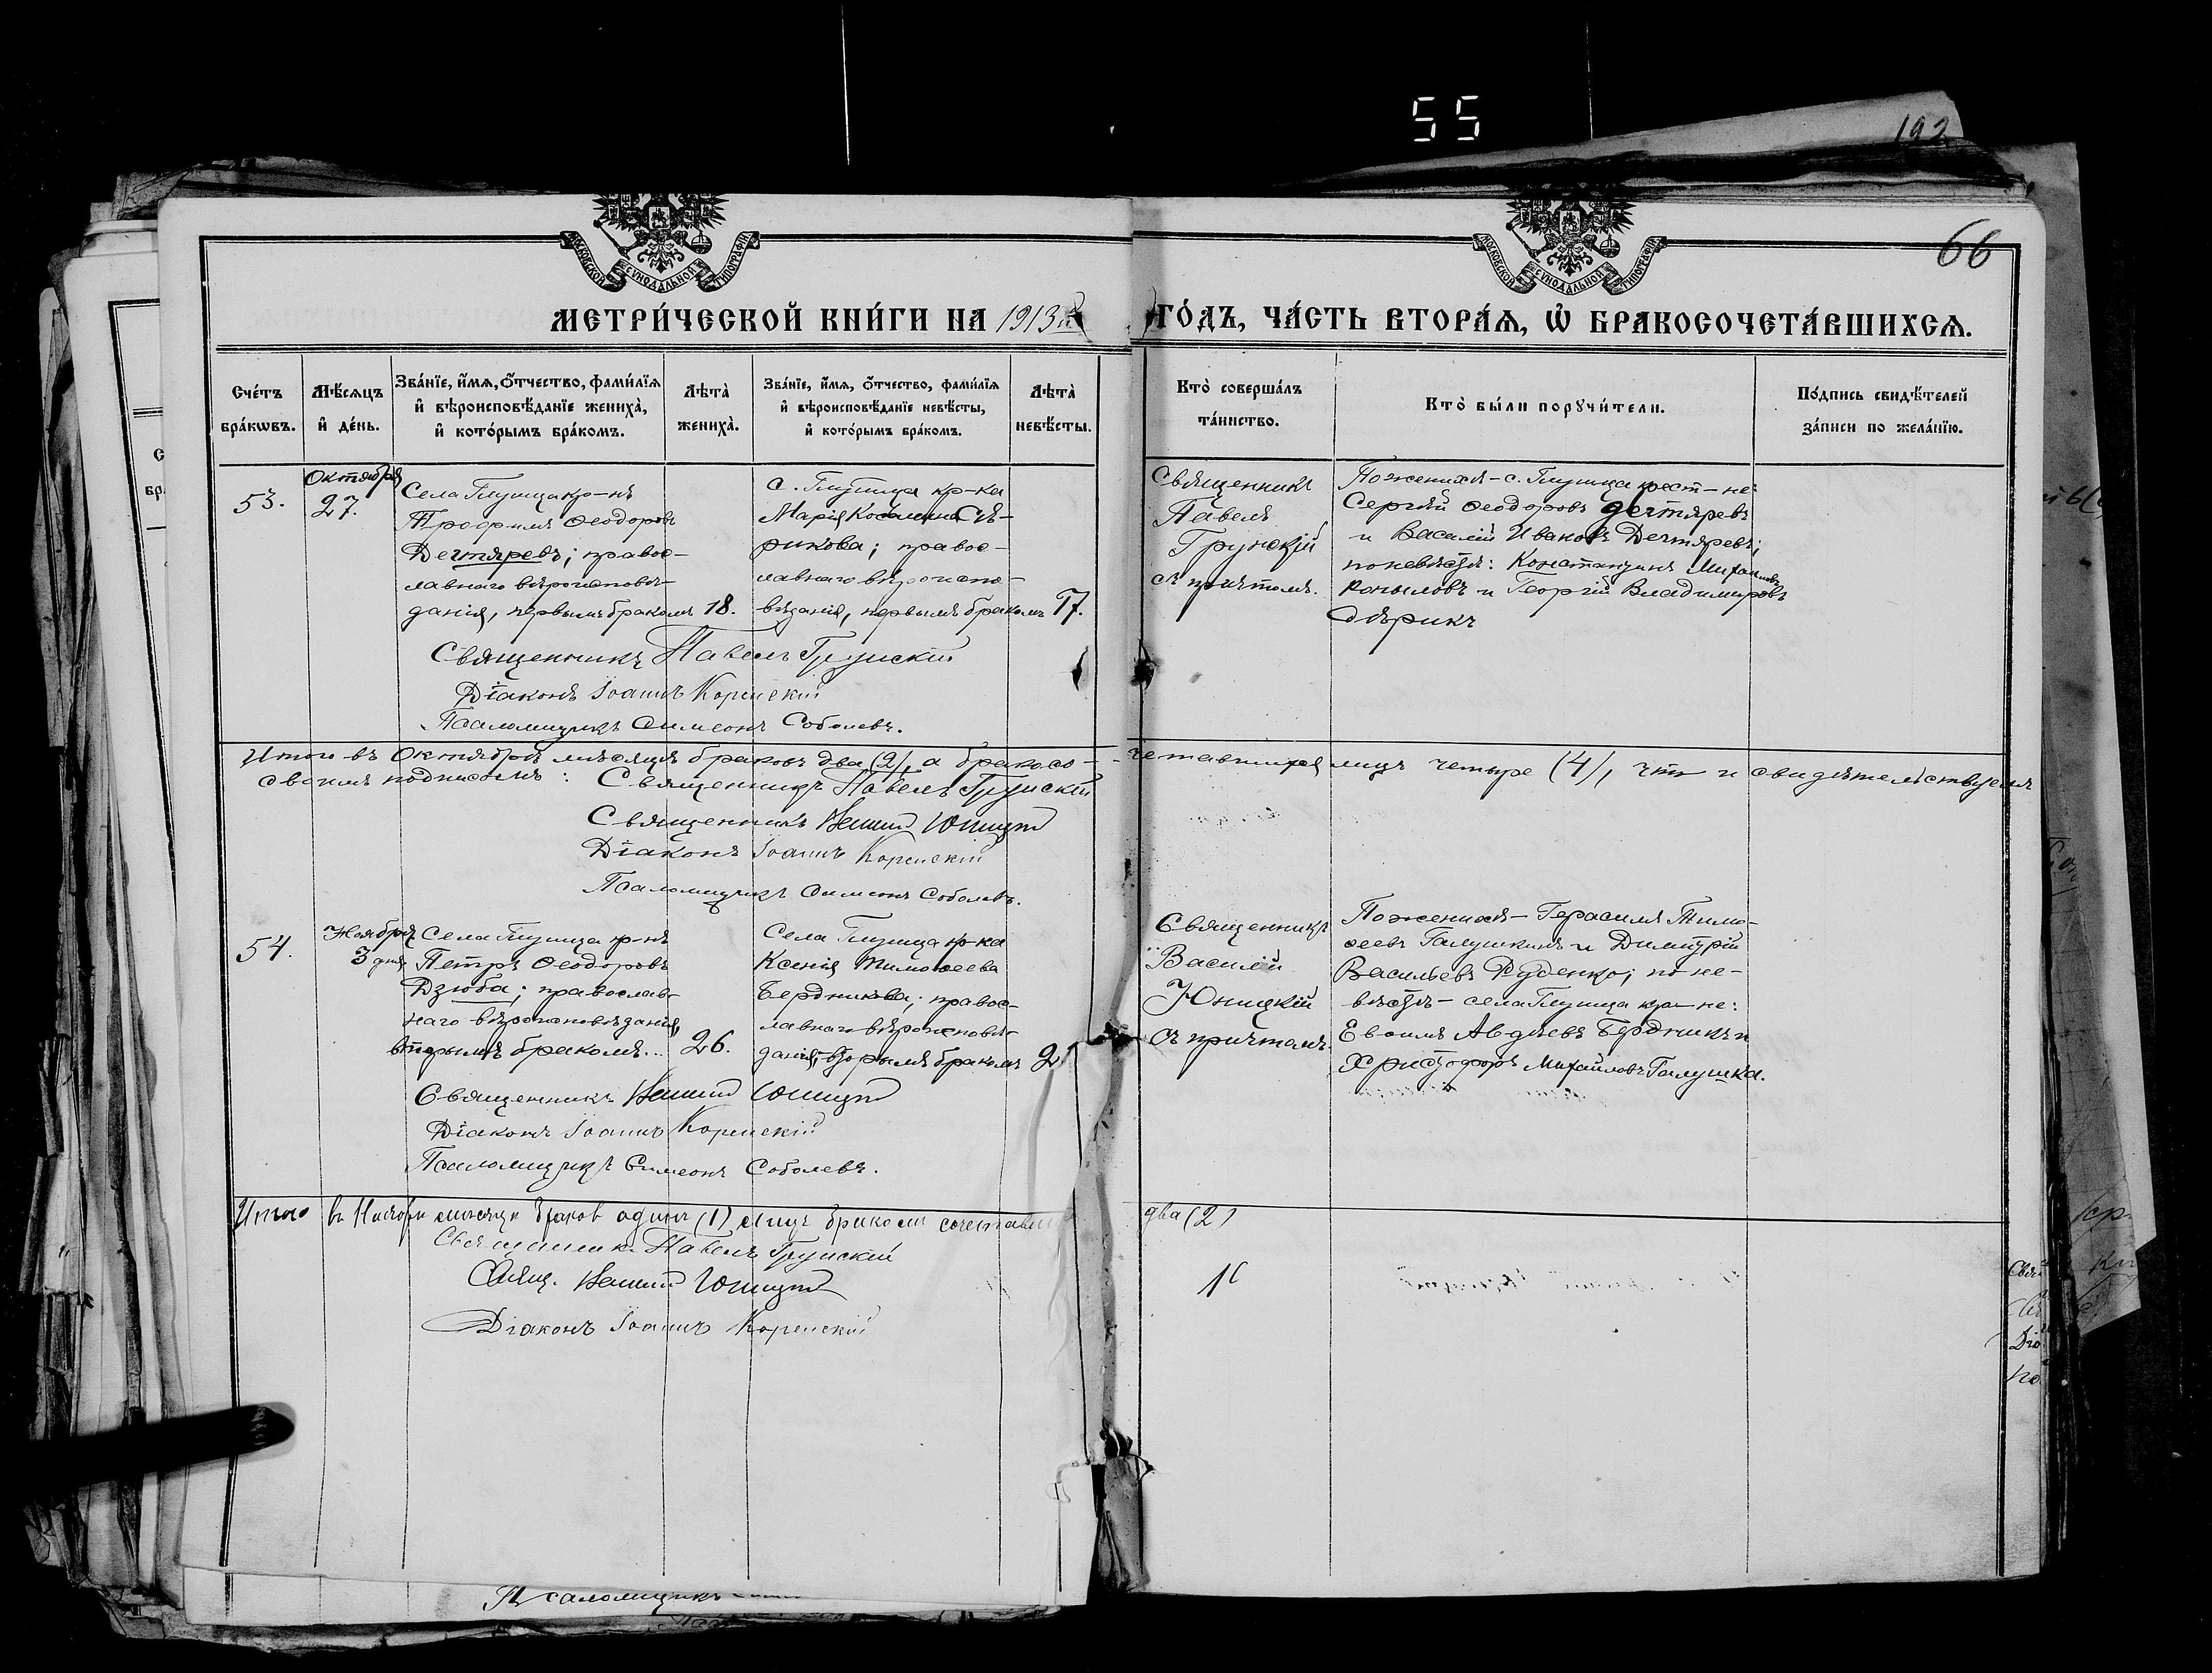 55
192
66
МОСКОВСКОЙ СѴНОДАЛЬНОЙ ТИПОГРАФІИ
МОСКОВСКОЙ СѴНОДАЛЬНОЙ ТИПОГРАФІИ
МЕТРИ́ЧЕСКОЙ КНИ́ГИ НА 1913й ГО́ДЪ, ЧА́СТЬ ВТОРА́Я, Ѡ БРАКОСОЧЕТА́ВШИХСЯ.
Сче́тъ бра́кѡвъ.
Мѣ́сяцъ и де́нь.
Зва́нїе, и́мя, о́тчество, фами́лїя
и вѣроисповѣ́данїе жениха̀,
и кото́рымъ бра́комъ.
Лѣта̀ жениха̀.
Зва́нїе, и́мя, о́тчество, фами́лїя
и вѣроисповѣ́данїе невѣ́сты,
и кото́рымъ бра́комъ.
Лѣта̀ невѣ́сты.
Кто̀ соверша́лъ
та́инство.
Кто̀ бы́ли порꙋчи́тели.
По́дпись свидѣ́телей
за́писи по жела́нїю.
53.
Октября
27.
Села Глушца кр-нъ
Трофимъ Ѳеодоровъ
Дегтяревъ; правос-
лавнаго вѣроисповѣ-
данія, первымъ бракомъ
18.
с. Глушца кр-ка
Марія
рикова; правос-
лавнаго вѣроиспо-
вѣданія, первымъ бракомъ
17.
Священникъ
Павелъ
Грунскій
съ причтомъ.
По женихѣ - с. Глушца крест-не:
Сергѣй Ѳеодоровъ Дегтяревъ
и Василій Ивановъ Дегтяревъ;
по невѣстѣ: Константинъ Михайловъ
Копыловъ и Георгій Владимировъ
Священникъ Павелъ Грунскій
Діаконъ Іоаннъ Коренскій
Псаломщикъ Симеонъ Соболевъ.
Итого въ Октябрѣ мѣсяцѣ браковъ два (2), а бракосо-
четавшихся лицъ четыре (4), что и свидѣтельствуемъ
своимъ подписомъ: Священникъ Павелъ Грунскій
Священникъ Василій Юницкій
Діаконъ Іоаннъ Коренскій
Псаломщикъ Симеонъ Соболевъ.
54.
Ноября
3 дня
Села Глушца кр-нъ
Петръ Ѳеодоровъ
Дзюба; православ-
наго вѣроисповѣданія,
вторымъ бракомъ...
26.
Села Глушца кр-ка
Ксенія Тимоѳеева
Бердникова; правос-
лавнаго вѣроисповѣ-
данія, вторымъ бракомъ
Священникъ
Василій
Юницкій
съ причтомъ.
По женихѣ - Герасимъ Тимо-
ѳеевъ Галушкинъ и Димитрій
Васильевъ Руденко; по не-
вѣстѣ - села Глушца кр-не:
Евфимъ Авдѣевъ Бердникъ и
Христофоръ Михайловъ Галушка.
Священникъ Василій Юницкій
Діаконъ Іоаннъ Коренскій
Псаломщикъ Симеонъ Соболевъ.
Итого въ Ноябрѣ мѣсяцѣ браков одинъ (1) лицъ бракомъ сочетавш
два (2)
Священникъ Павелъ Грунскій
Свящ. Василій Юницкій
Діаконъ Іоаннъ Коренскій
Псаломщикъ